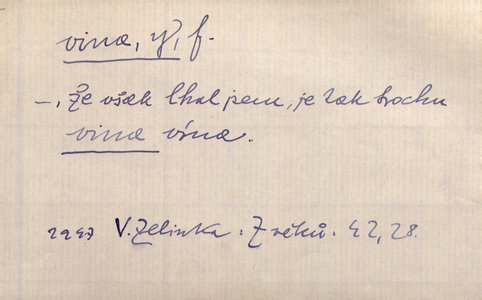 vina, y, f.
–, že však lhal jsem, je tak trochu
vina vína.
2947 V. Zelinka: Z věků. 42, 28.